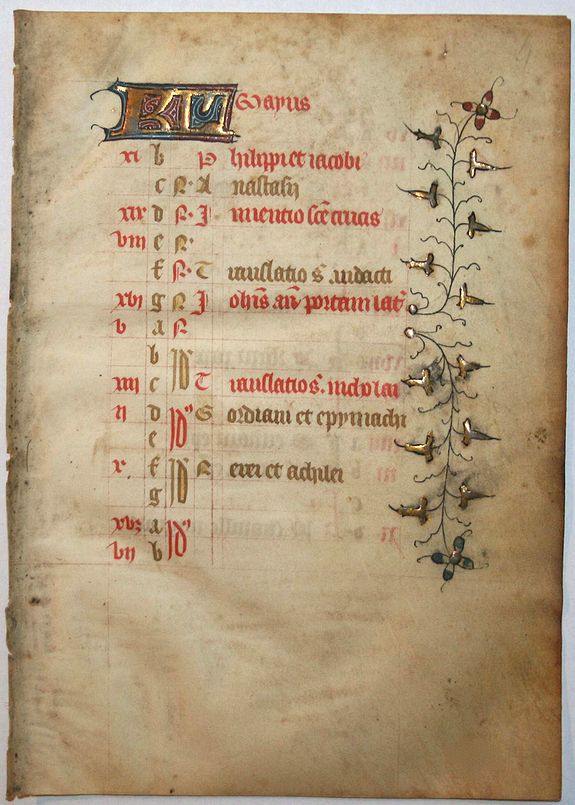 KL Mayus
xi b Philippi et iacobi
c N. Anastasii
xix d N. Inuentio sce crucis
viii e N.
f N. Translatio s.
xvi g N Iohis an portam lat
v a N
b Id
xiii c Translatio s. nicholai
ii d Id Gordiani et epymachi
e
x f Id Nerei et achilei
g
xviii a Id
vii b